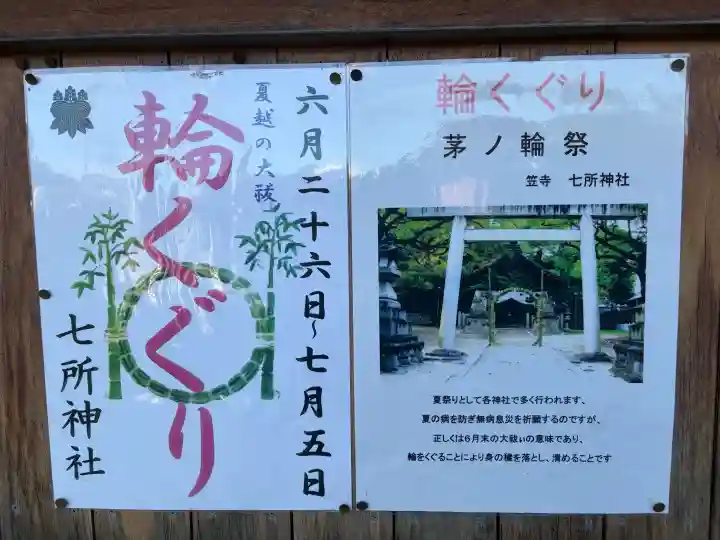 六月二十六日～七月五日
夏越の大祓
輪くぐり
七所神社
輪くぐり
茅ノ輪祭
笠寺 七所神社
夏祭りとして各神社で多く行われます、
夏の病を防ぎ無病息災を祈願するのですが、
正しくは6月末の大祓いの意味であり、
輪をくぐることにより身の穢を落とし、清めることです